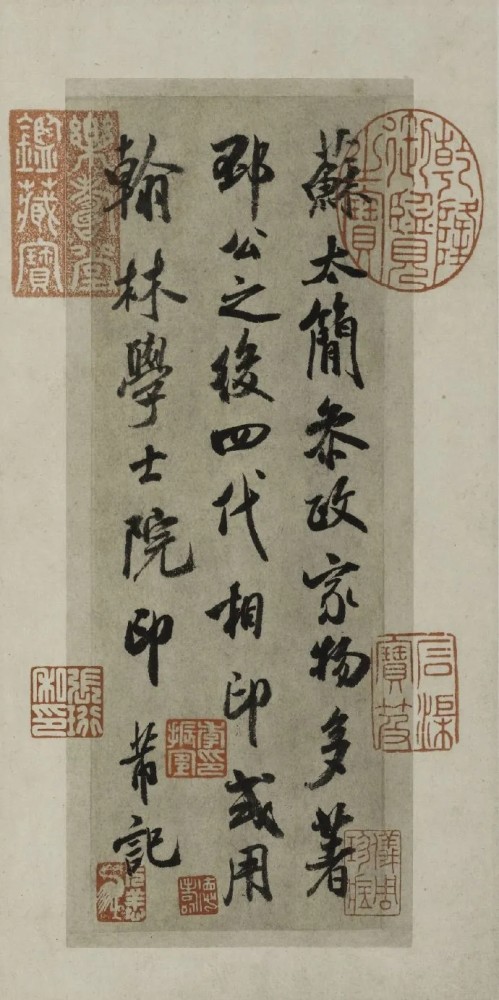 蘇太簡叅政家物多著
邳公之後四代相印或用
翰林學士院印 芾記
乾隆御覽之寶
樂壽堂鑑藏寶
儀周珍藏